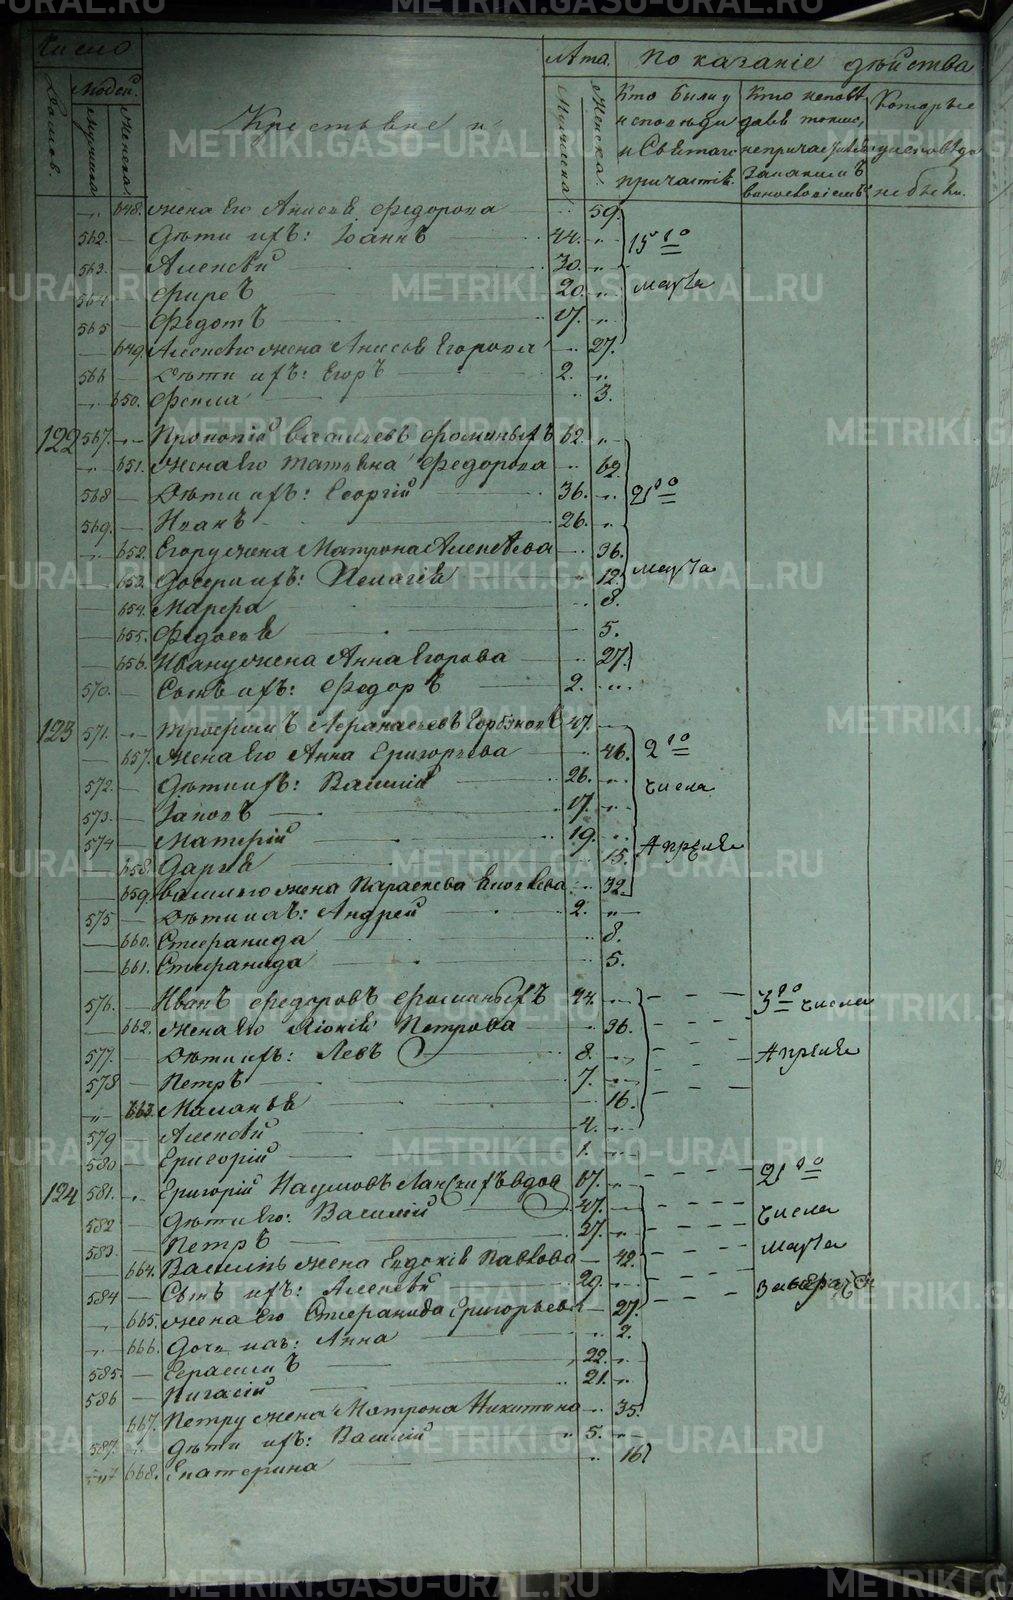 Число
Лѣта.
Показаніе дѣйства
Домов.
Людей.
Мужеска
Женска
Крестьяне и
Мужеска
Женска.
Кто были у исповѣди и Святаго причастія.
Кто исповѣдавъ токмо, не причаст.
Которые у исповѣди не были.
" 648. жена его Анисія Федорова 59.
562. Дѣти ихъ: Іоаннъ 44. " 15го
563. Алексѣй 30. "
564. Фирсъ 20. " марта
565 Федотъ 17. "
649. Алексѣю жена Анисія Егорова 27.
566 Дѣти ихъ: Егоръ 2. "
" 650. Фекла " 3.
122 567. " Прокопій Васильевъ Фоминыхъ 62. "
" 651. Жена его Татьяна Федорова " 62.
568 Дѣти ихъ: Георгій 36. " 21го
569. Иванъ 26. "
" 652. Егору жена Матрона Алексѣева 36.
653. Дочери ихъ: Пелагія 12. марта
654. Марфа 8.
655. Федосья 5.
656. Ивану жена Анна Егорова " 27.
570. Сынъ ихъ: Федоръ 2. "
123 571. " Трофимъ Афанасьевъ Горбунов 47.
657. Жена его Анна Григорьева " 46. 2го
572. Дѣти ихъ: Василій 26. " числа
573. Іаковъ 17. "
574 Матфій 19. " Апрѣля
658. Дарья 15.
659. Василью жена Параскева 32.
575 Дѣти ихъ: Андрей 2. "
660. Стефанида " 8.
661. Стефанида " 5.
576. Иванъ Федоровъ Фоминыхъ 44. " 3го числа
662. жена его Петрова " 36.
577. Дѣти ихъ: Левъ 8. " Апрѣля
578 Петръ 7. "
" 663. Маланья 16.
579 Алексѣй 4. "
580 Григорій 1. "
124 581. " Григорій Наумовъ Ланскихъ вдов 67. " 21го
582 Дѣти его: Василій 47. " числа
583. Петръ 37. " марта
664. Василью жена Евдокія Павлова 42.
584 Сынъ ихъ: Алексѣй 29.
665. жена его Стефанида Григорьева 27.
" 666. Дочь ихъ: Анна " 2.
585. Герасимъ 22. "
586 21. "
667. Петру жена Матрона Никитина " 35.
587. " Дѣти ихъ: Василій " 5. "
668. Екатерина " 16
METRIKI.GASO-URAL.RU